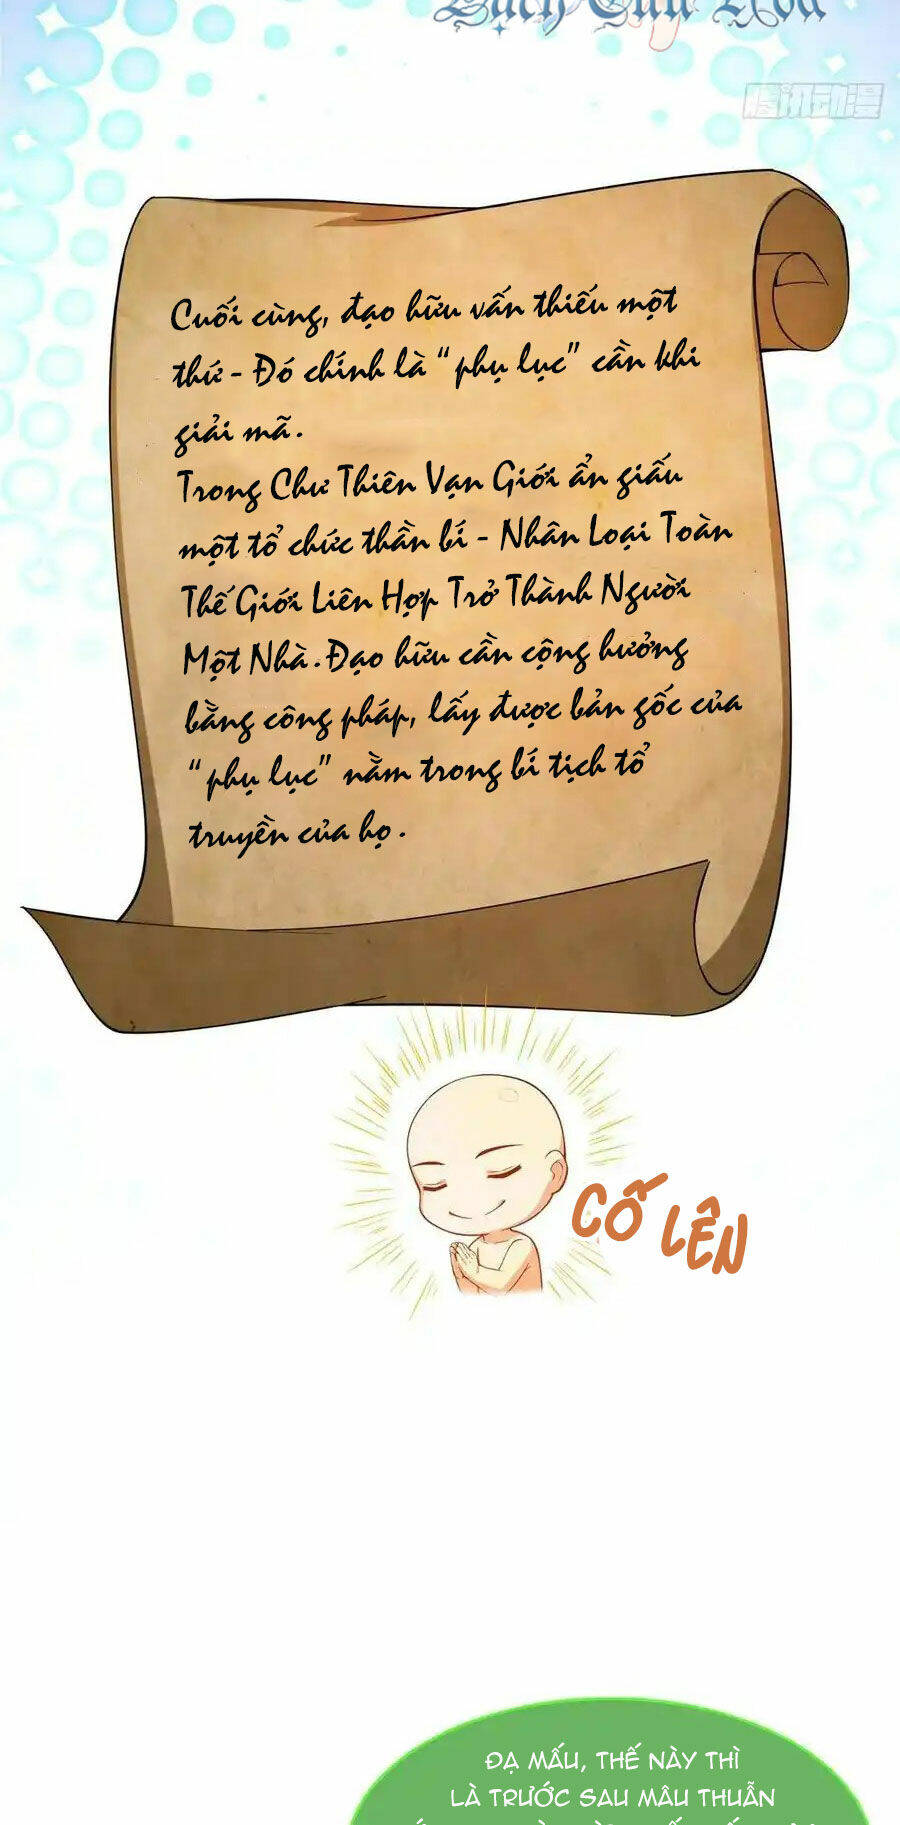 腾讯动漫
Cuối cùng, đạo hữu vẫn thiếu một
thứ - Đó chính là " phụ lục" cần khi
giải mã.
Trong Chư Thiên Vạn Giới ẩn giấu
một tổ chức thần bí - Nhân Loại Toàn
Thế Giới Liên Hợp Trở Thành Người
Một Nhà. Đạo hữu cần cộng hưởng
bằng công pháp, lấy được bản gốc của
" phụ lục" nằm trong bí tịch tổ
truyền của họ.
CỐ LÊN
ĐẠ MẤU, THẾ NÀY THÌ
LÀ TRƯỚC SAU MÂU THUẪN